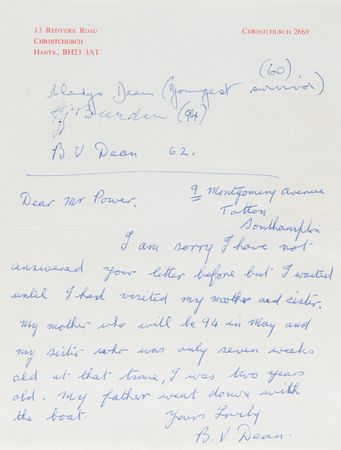 13 REDVERS ROAD
CHRISTCHURCH
HANTS., BH23 3AT
CHRISTCHURCH 2669
(60)
Gladys Dean (youngest survivor)
(94)
B V Dean 62.
9 Montgomery avenue
Totton
Southampton
Dear Mr Power.
I am sorry I have not
answered your letter before but I waited
until I had visited my mother and sister.
My mother who will be 94 in May and
my sister who was only seven weeks
old at that time, I was two years
old. My father went down with
the boat. Yours
B. V. Dean.